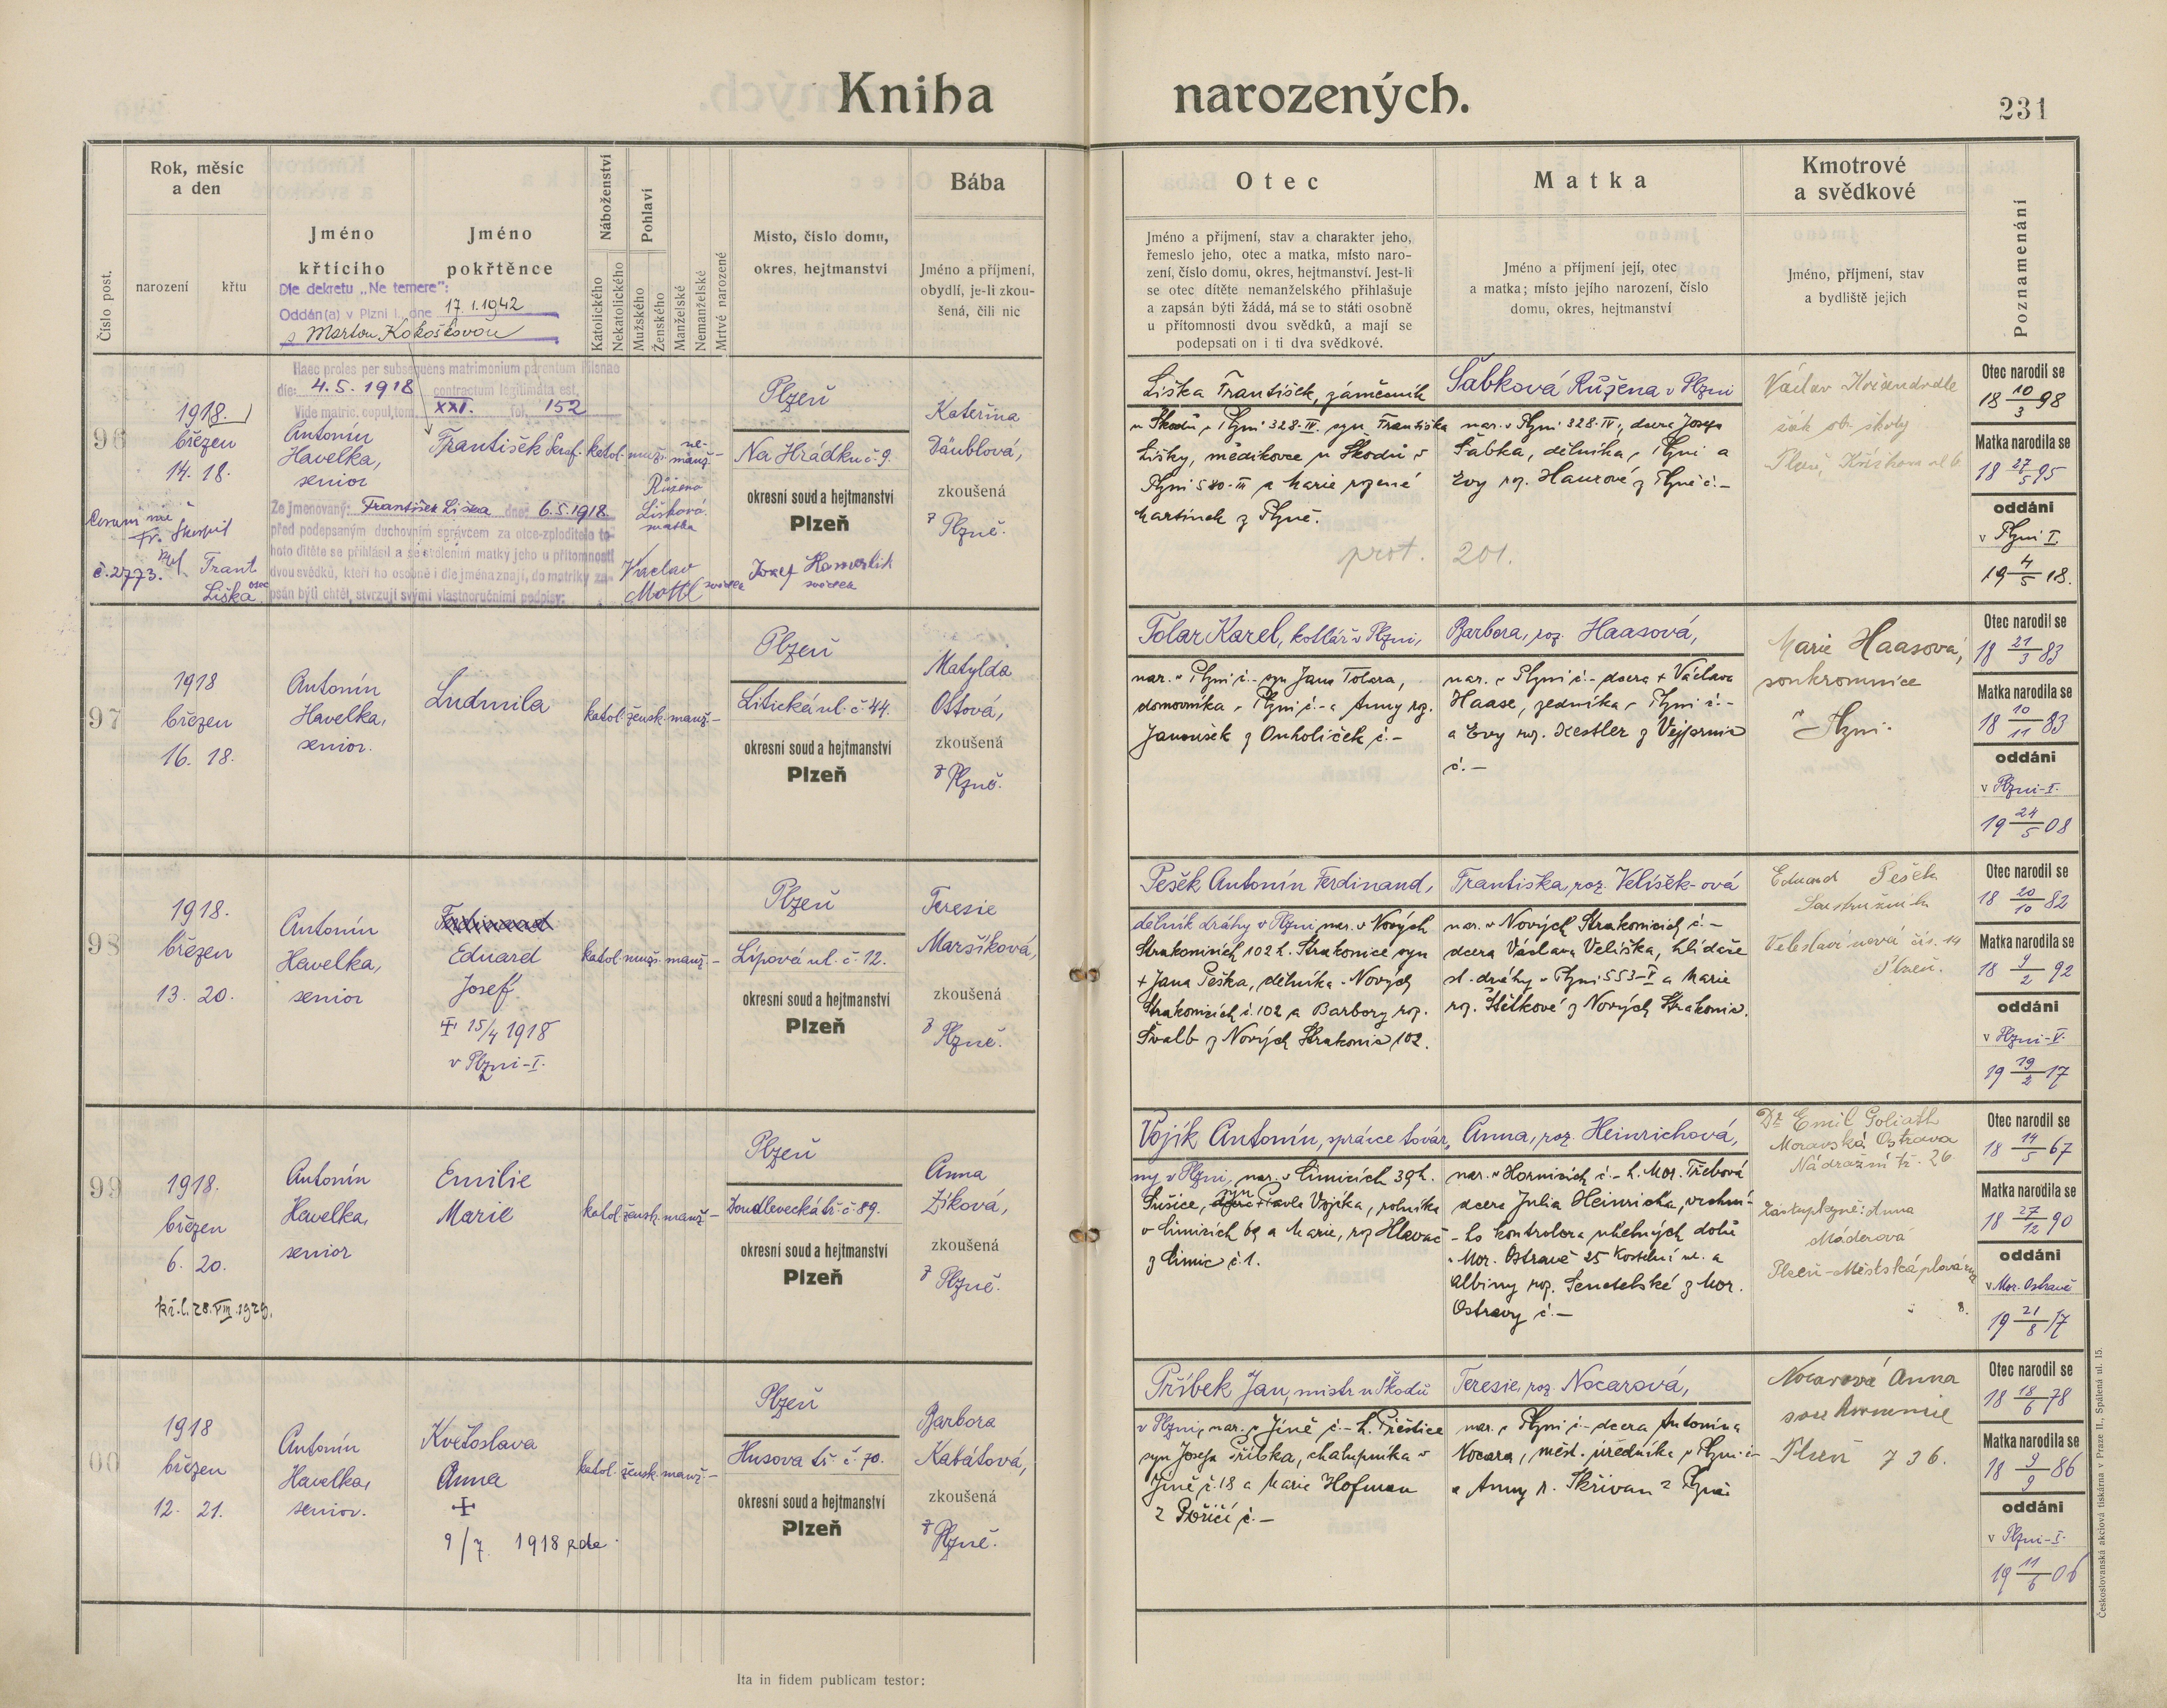 Kniha narozených.
231
Číslo post.
Rok, měsíc
a den
narození
křtu
Jméno
křtícího
Jméno
pokřtěnce
Náboženství
Katolického
Nekatolického
Pohlaví
Mužského
Ženského
Manželské
Nemanželské
Mrtvé narozené
Místo, číslo domu,
okres, hejtmanství
Bába
Jméno a příjmení,
obydlí, je-li zkou-
šená, čili nic
Otec
Jméno a příjmení, stav a charakter jeho,
řemeslo jeho, otec a matka, místo naro-
zení, číslo domu, okres, hejtmanství. Jest-li
se otec dítěte nemanželského přihlašuje
a zapsán býti žádá, má se to státi osobně
u přítomnosti dvou svědků, a mají se
podepsati on i ti dva svědkové.
Matka
Jméno a příjmení její, otec
a matka; místo jejího narození, číslo
domu, okres, hejtmanství
Kmotrové
a svědkové
Jméno, příjmení, stav
a bydliště jejich
Poznamenání
Dle dekretu „Ne temere":
Oddán(a) v Plzni I., dne 17.1.1942
s Martou Kokoškovou
Haec proles per subsequens matrimonium parentum Pilsnae
die: 4.5.1918 contractum legitimata est.
Vide matric. copul. tom. XXI. fol. 152
96
1918.
březen
14. 18.
Antonín
Havelka,
senior
František Seraf.
katol. muž. ne-
manž. –
Plzeň
Na Hrádku č. 9.
okresní soud a hejtmanství
Plzeň
Kateřina
Däublová,
zkoušená
z Plzně.
Ze jmenovaný: František Liška dne: 6.5.1918
před podepsaným duchovním správcem za otce-zploditele to-
hoto dítěte se přihlásil a se svolením matky jeho u přítomnosti
dvou svědků, kteří ho osobně i dle jména znají, do matriky za-
psán býti chtěl, stvrzují svými vlastnoručními podpisy:
č. 2773.
Frant
Liška otec
Růžena
Lišková
matka
Václav
Mottl svědek
Josef
svědek
Liška František, zámečník
u Škodů v Plzni 328-IV. syn Františka
Lišky, mědikovce u Škodů v
Plzni 580-III a Marie rozené
Martínek z Plzně.
prot. 201.
Šabková Růžena v Plzni
nar. v Plzni 328-IV., dcera Josefa
Šabka, dělníka v Plzni a
Evy roz. Haurové z Plzně č. –
Václav
žák ob. školy
Plzeň,
Otec narodil se
18 10/3 98
Matka narodila se
18 27/5 95
oddáni
v Plzni I.
19 4/5 18.
97
1918
březen
16. 18.
Antonín
Havelka,
senior.
Ludmila
katol. žensk. manž. –
Plzeň
Litická ul. č. 44.
okresní soud a hejtmanství
Plzeň
Matylda
Ottová,
zkoušená
z Plzně.
Tolar Karel, kotlář v Plzni,
nar. v Plzni č. – syn Jana Tolara,
domovníka v Plzni č. – a Anny roz.
Janoušek z Druholiček č. –
Barbora, roz. Haasová,
nar. v Plzni č. – dcera + Václava
Haase, zedníka v Plzni č. –
a Evy roz. Kestler z Vejprnic
č. –
Marie Haasová,
soukromnice
v Plzni.
Otec narodil se
18 21/3 83
Matka narodila se
18 10/11 83
oddáni
v Plzni-I.
19 24/5 08
98
1918.
březen
13. 20.
Antonín
Havelka,
senior
Ferdinand
Eduard
Josef
+ 15/4 1918
v Plzni-I.
katol. muž. manž. –
Plzeň
Lípová ul. č. 12.
okresní soud a hejtmanství
Plzeň
Teresie
Maršíková,
zkoušená
z Plzně.
Pešek Antonín Ferdinand,
dělník dráhy v Plzni nar. v Nových
Strakonicích 102 h. Strakonice syn
+ Jana Peška, dělníka v Nových
Strakonicích č. 102 a Barbory roz.
Švalb z Nových Strakonic 102.
Františka, roz. Velíšek-ová
nar. v Nových Strakonicích č. –
dcera Václava Velíška, hlídače
st. dráhy v Plzni 553-V a Marie
roz. Štětkové z Nových Strakonic.
Eduard Pešek
Soustružník
Veleslavínová čís. 14
Plzeň.
Otec narodil se
18 20/10 82
Matka narodila se
18 9/2 92
oddáni
v Plzni-V.
19 19/2 17
99
1918.
březen
6. 20.
kř. l. 28.VIII.1929.
Antonín
Havelka,
senior
Emilie
Marie
katol. žensk. manž. –
Plzeň
Doudlevecká tř. č. 89.
okresní soud a hejtmanství
Plzeň
Anna
Zíková,
zkoušená
z Plzně.
Vojík Antonín, správce továr-
ny v Plzni, nar. v Čimicích 39 h.
Sušice, syn + Pavla Vojíka, rolníka
v Čimicích 69 a Marie, roz. Hlaváč
z Čimic č. 1.
Anna, roz. Heinrichová,
nar. v Hornicích č. – h. Mor. Třebová
dcera Julia Heinricha, vrchní-
ho kontrolora uhelných dolů
v Mor. Ostravě 25 Kostelní ul. a
Albiny roz. Sentelské z Mor.
Ostravy č. –
Dr Emil Goliath
Moravská Ostrava
Nádražní tř. 26
Zástupkyně: Anna
Máderová
Plzeň-Městská plovárna
8.
Otec narodil se
18 14/5 67
Matka narodila se
18 27/12 90
oddáni
v Mor. Ostravě
19 21/8 17
00
1918
březen
12. 21.
Antonín
Havelka,
senior.
Květoslava
Anna
+
9/7 1918 zde.
katol. žensk. manž. –
Plzeň
Husova tř. č. 70.
okresní soud a hejtmanství
Plzeň
Barbora
Kabátová,
zkoušená
z Plzně.
Příbek Jan, mistr u Škodů
v Plzni, nar. v Jíně č. – h. Přeštice
syn Josefa Příbka, chalupníka v
Jíně č. 18 a Marie Hofman
z Poříčí č. –
Teresie, roz. Nocarová,
nar. v Plzni č. – dcera Antonína
Nocara, měst. úředníka v Plzni č –
a Anny r. Skřivan z Plzně
Nocarová Anna
soukromnice
Plzeň 736.
Otec narodil se
18 18/6 78
Matka narodila se
18 9/9 86
oddáni
v Plzni-I.
19 11/6 06
Ita in fidem publicam testor:
Československá akciová tiskárna v Praze II., Spálená ul. 15.